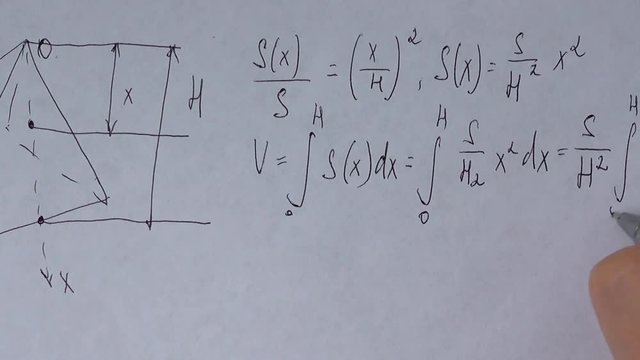 O
x
H
x
S(x)/S = (x/H)², S(x) = S/H² x²
V = ∫₀ᴴ S(x)dx = ∫₀ᴴ S/H₂ x² dx = S/H² ∫ᴴ